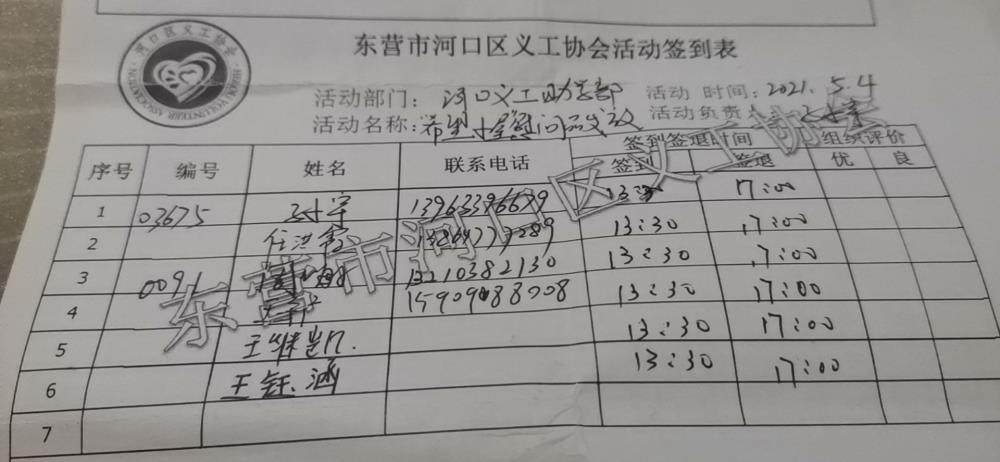 东营市河口区义工协会活动签到表
河口区义工协会
HEKOU VOLUNTEER ASSOCIATION
活动部门：河口义工助学部 活动时间：2021.5.4
活动名称：希望小屋慰问品发放 活动负责人
序号 编号 姓名 联系电话 签到签退时间 组织评价
签到 签退 优 良
1 03675 13963396679 13:30 17:00
2 任洪鑫 13:30 17:00
3 0091 13210382130 13:30 17:00
4 15909088008 13:30 17:00
5 王继凯 13:30 17:00
6 王钰涵 13:30 17:00
7
东营市河口区义工协会